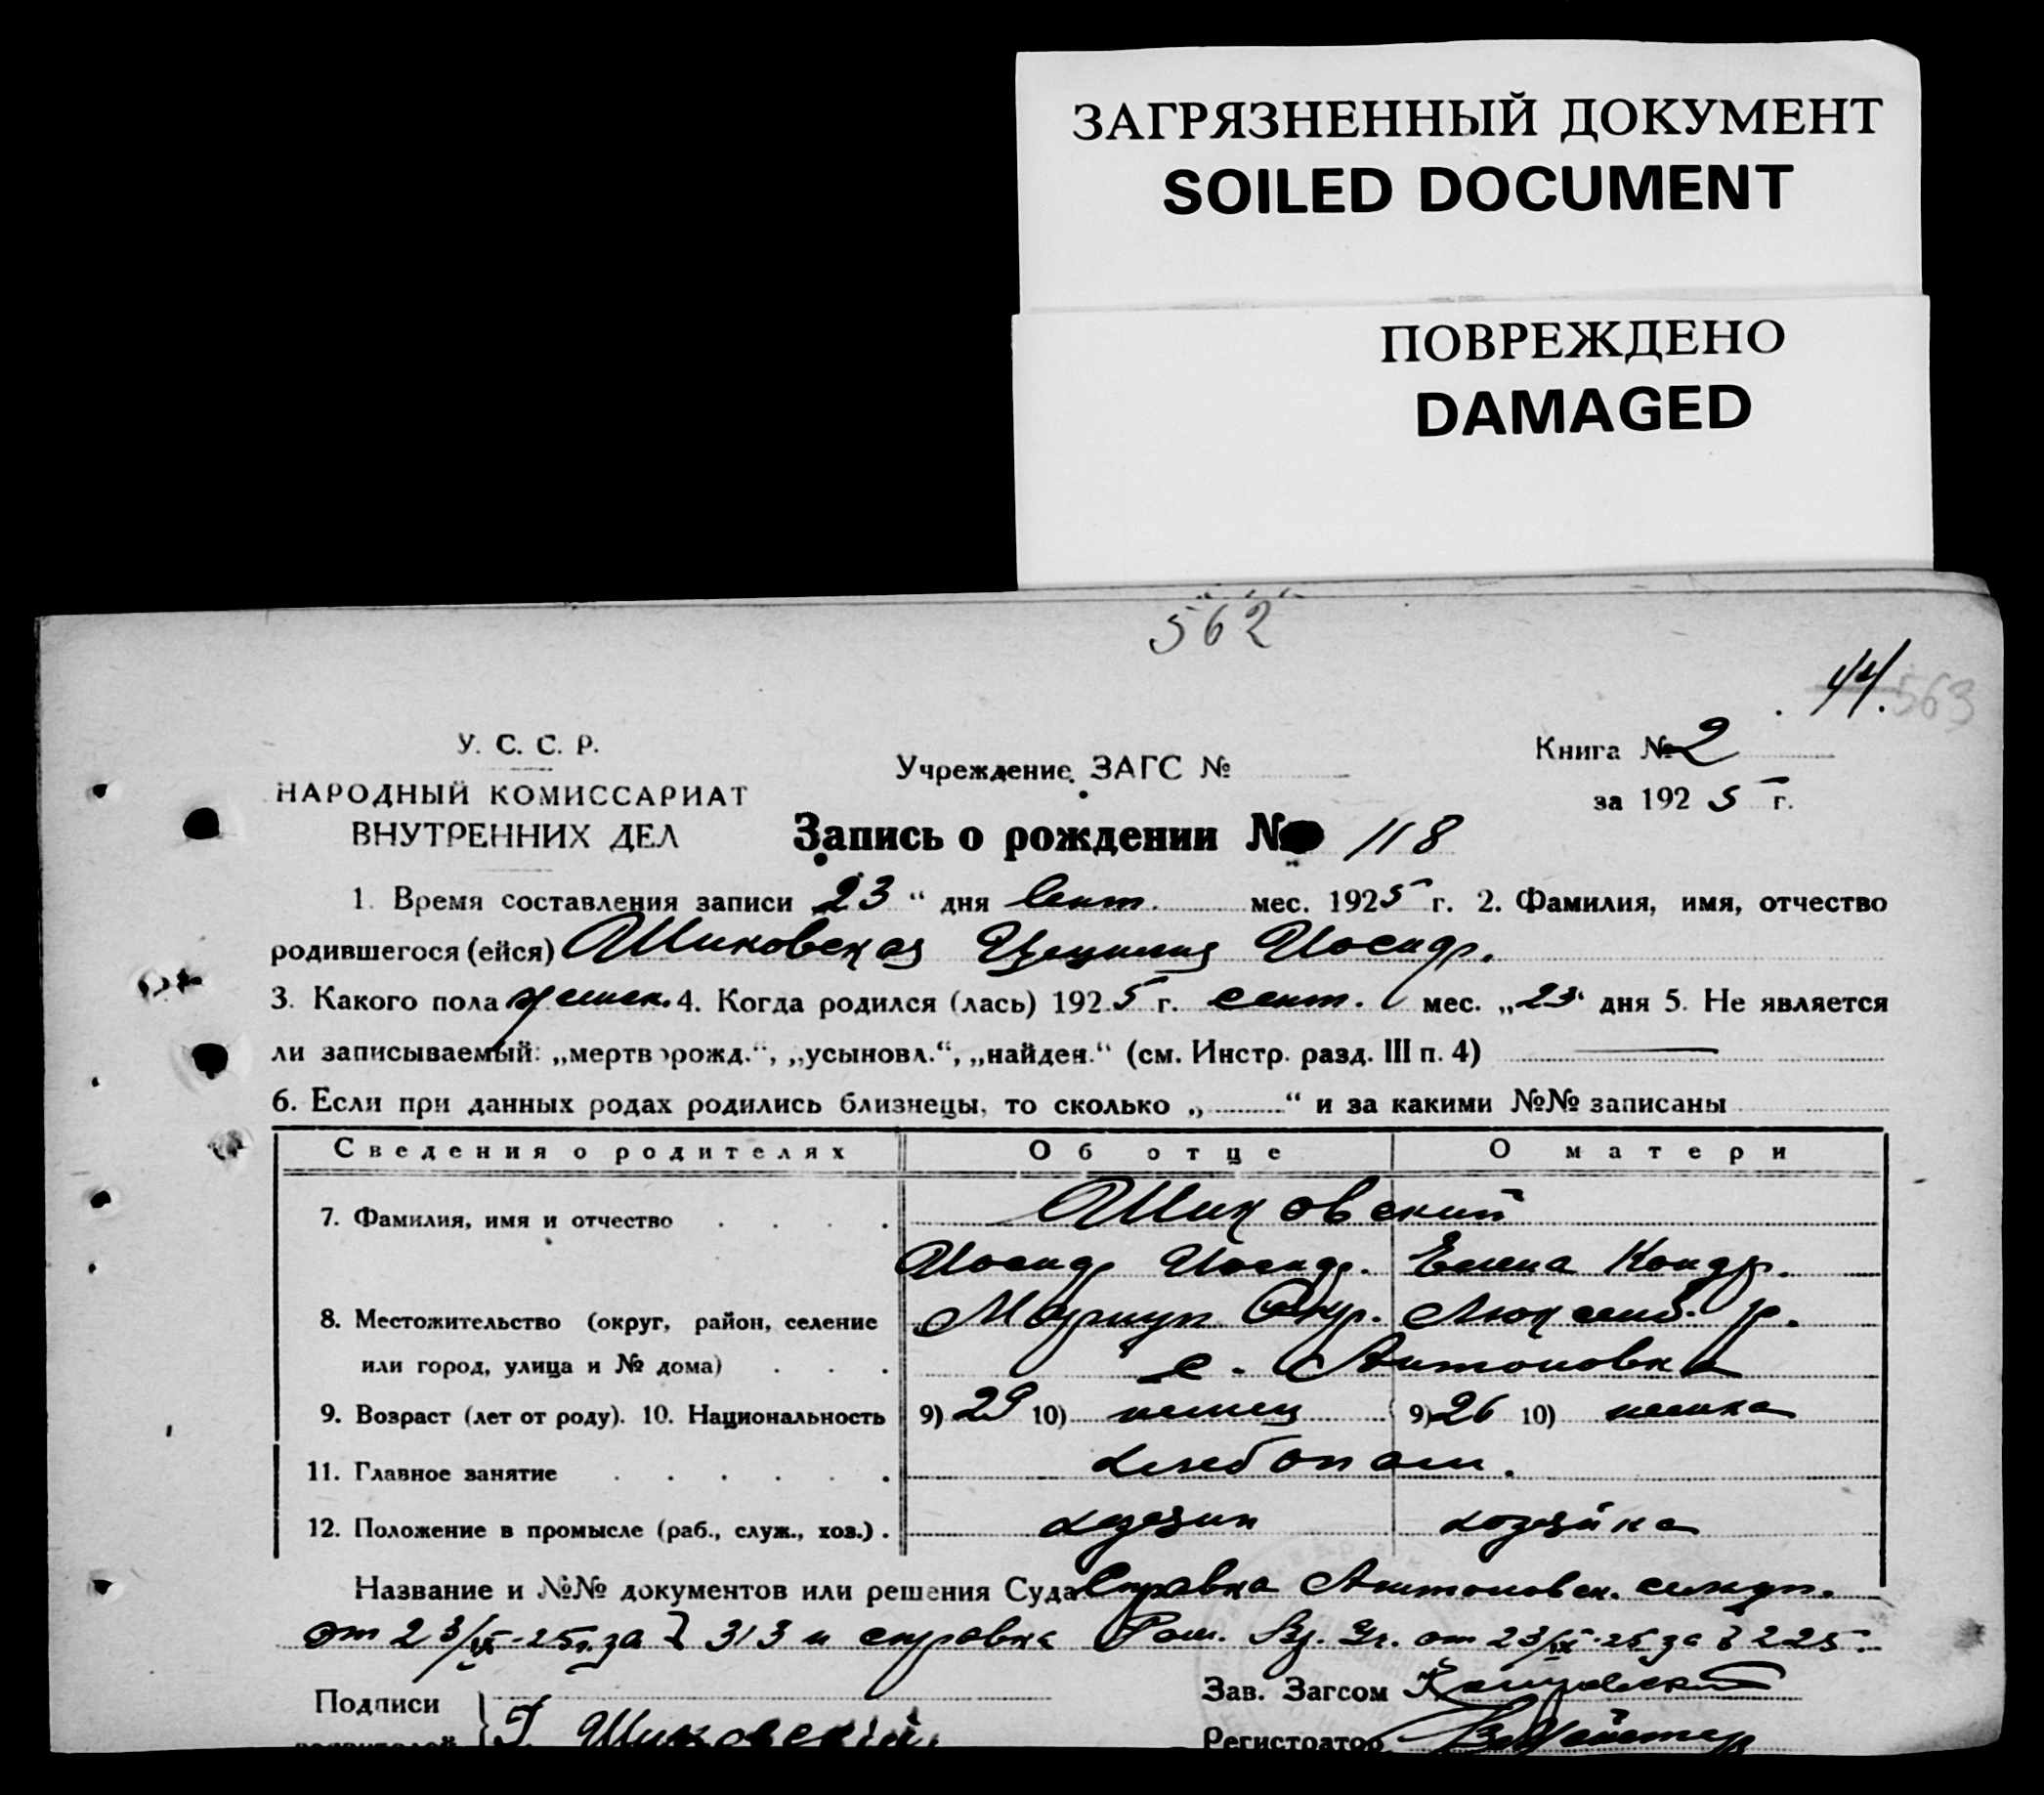 ЗАГРЯЗНЕННЫЙ ДОКУМЕНТ
SOILED DOCUMENT
ПОВРЕЖДЕНО
DAMAGED
562
44. 563
У. С. С. Р.
НАРОДНЫЙ КОМИССАРИАТ
ВНУТРЕННИХ ДЕЛ
Учреждение ЗАГС №
Книга № 2
за 1925 г.
Запись о рождении № 118
1. Время составления записи „23“ дня Сент. мес. 1925 г. 2. Фамилия, имя, отчество
родившегося (ейся) Шиковская Цецилия Иосиф.
3. Какого пола женск. 4. Когда родился (лась) 1925 г. сент. мес. „23“ дня 5. Не является
ли записываемый: „мерторожд.“, „усыновл.“, „найден.“ (см. Инстр. разд. III п. 4) —
6. Если при данных родах родились близнецы, то сколько „ “ и за какими №№ записаны
Сведения о родителях Об отце О матери
7. Фамилия, имя и отчество Шиковский
Иосиф Иосиф. Елена Кондр.
8. Местожительство (округ, район, селение Мариуп Окр. Люксемб. р.
или город, улица и № дома) с. Антоновка
9. Возраст (лет от роду). 10. Национальность 9) 29 10) немец 9) 26 10) немка
11. Главное занятие хлебопаш.
12. Положение в промысле (раб., служ., хоз.) хозяин хозяйка
Название и №№ документов или решения Суда Справка Антоновск.
от 23/IX-25 г. за № 313 и справка от 23/IX-25 за № 225.
Подписи Зав. Загсом
родителей И Шиковский Регистратор